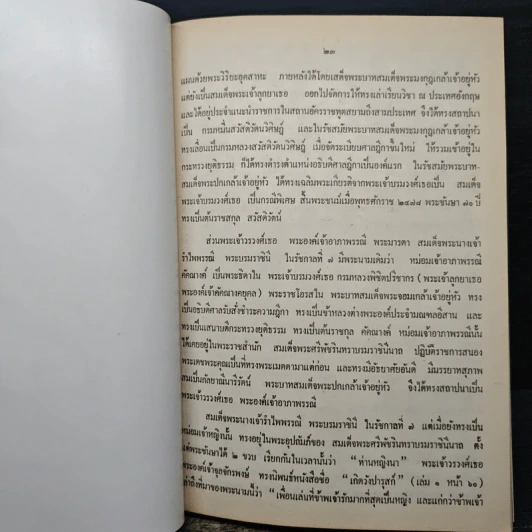 ๒๓
แผนด้วยพระวิริยะอุตสาหะ ภายหลังได้โดยเสด็จพระบาทสมเด็จพระมงกุฎเกล้าเจ้าอยู่หัว
แต่ยังเป็นสมเด็จพระเจ้าลูกยาเธอ ออกไปจัดการให้ทรงเล่าเรียนวิชา ณ ประเทศอังกฤษ
และได้อยู่ประจำแนะนำราชการในสถานอัครราชทูตสยามถึงสามประเทศ จึงได้ทรงสถาปนา
เป็น กรมหมื่นสวัสดิวัดนวิศิษฎ์ และในรัชสมัยพระบาทสมเด็จพระมงกุฎเกล้าเจ้าอยู่หัว
ทรงเลื่อนเป็นกรมหลวงสวัสดิวัดนวิศิษฎ์ เมื่อจัดระเบียบศาลฎีกาขึ้นใหม่ ให้รวมเข้าอยู่ใน
กระทรวงยุติธรรม ก็ได้ทรงดำรงตำแหน่งอธิบดีศาลฎีกาเป็นองค์แรก ในรัชสมัยพระบาท-
สมเด็จพระปกเกล้าเจ้าอยู่หัว ได้ทรงเฉลิมพระเกียรติจากพระเจ้าบรมวงศ์เธอเป็น สมเด็จ
พระเจ้าบรมวงศ์เธอ เป็นกรณีพิเศษ สิ้นพระชนม์เมื่อพุทธศักราช ๒๔๗๘ พระชันษา ๗๐ ปี
ทรงเป็นต้นราชสกุล สวัสดิวัตน์
ส่วนพระเจ้าวรวงศ์เธอ พระองค์เจ้าอาภาพรรณี พระมารดา สมเด็จพระนางเจ้า
รำไพพรรณี พระบรมราชินี ในรัชกาลที่ ๗ มีพระนามเดิมว่า หม่อมเจ้าอาภาพรรณี
คัคณางค์ เป็นพระธิดาใน พระเจ้าบรมวงศ์เธอ กรมหลวงพิชิตปรีชากร (พระเจ้าลูกยาเธอ
พระองค์เจ้าคัคณางคยุคล) พระราชโอรสใน พระบาทสมเด็จพระจอมเกล้าเจ้าอยู่หัว ทรง
เป็นอธิบดีศาลรับสั่งชำระความฎีกา ทรงเป็นข้าหลวงต่างพระองค์ประจำมณฑลอิสาน และ
ทรงเป็นเสนาบดีกระทรวงยุติธรรม ทรงเป็นต้นราชกุล คัคณางค์ หม่อมเจ้าอาภาพรรณีนั้น
ได้เคยอยู่ในพระราชสำนัก สมเด็จพระศรีพัชรินทราบรมราชินีนาถ ปฏิบัติราชการสนอง
พระเดชพระคุณเป็นที่ทรงพระเมตตามาแต่ก่อน และทรงมีอัธยาศัยอันดี มีมรรยาทสุภาพ
สมเป็นกัลยาณีนารีรัตน์ พระบาทสมเด็จพระปกเกล้าเจ้าอยู่หัว จึงได้ทรงสถาปนาเป็น
พระเจ้าวรวงศ์เธอ พระองค์เจ้าอาภาพรรณี
สมเด็จพระนางเจ้ารำไพพรรณี พระบรมราชินี ในรัชกาลที่ ๗ แต่เมื่อยังทรงเป็น
หม่อมเจ้าหญิงนั้น ทรงอยู่ในพระอุปถัมภ์ของ สมเด็จพระศรีพัชรินทราบรมราชินีนาถ ตั้ง
แต่พระชันษาได้ ๒ ขวบ เรียกกันในเวลานั้นว่า “ท่านหญิงนา” พระเจ้าวรวงศ์เธอ
พระองค์เจ้าจุลจักรพงษ์ ทรงนิพนธ์หนังสือชื่อ “เกิดวังปารุสก์” (เล่ม ๑ หน้า ๖๐)
เล่าถึงที่มาของพระนามนี้ว่า “เพื่อนเล่นที่ข้าพเจ้ารักมากที่สุดเป็นหญิง และแก่กว่าข้าพเจ้า